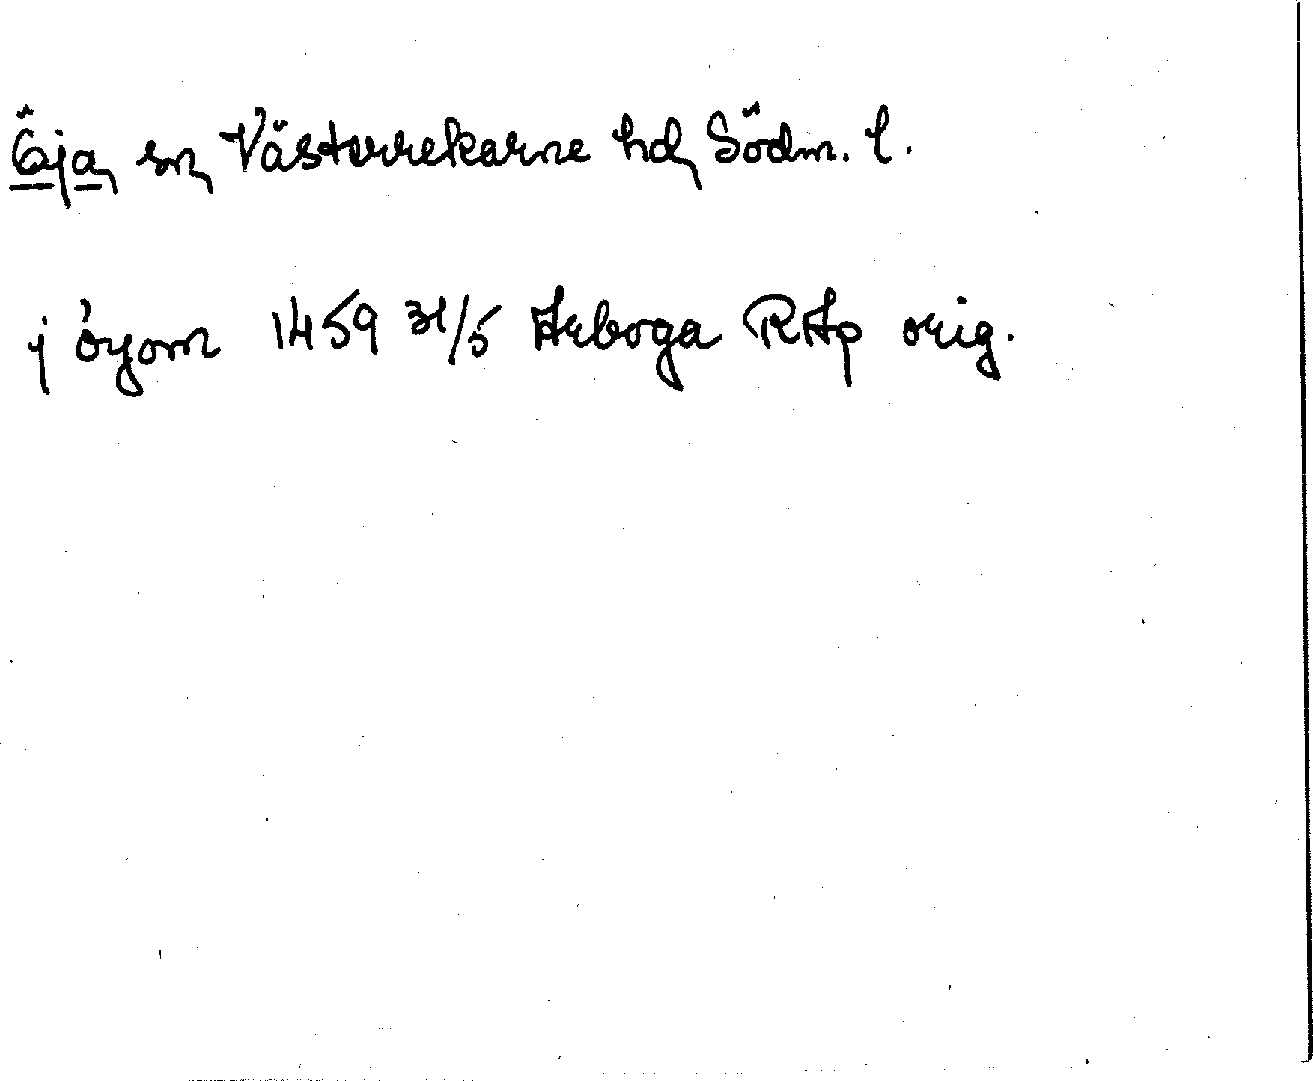 Öja, sn, Västerrekarne hd, Södm. l.
j óyom 1459 31/5 Arboga RAp orig.